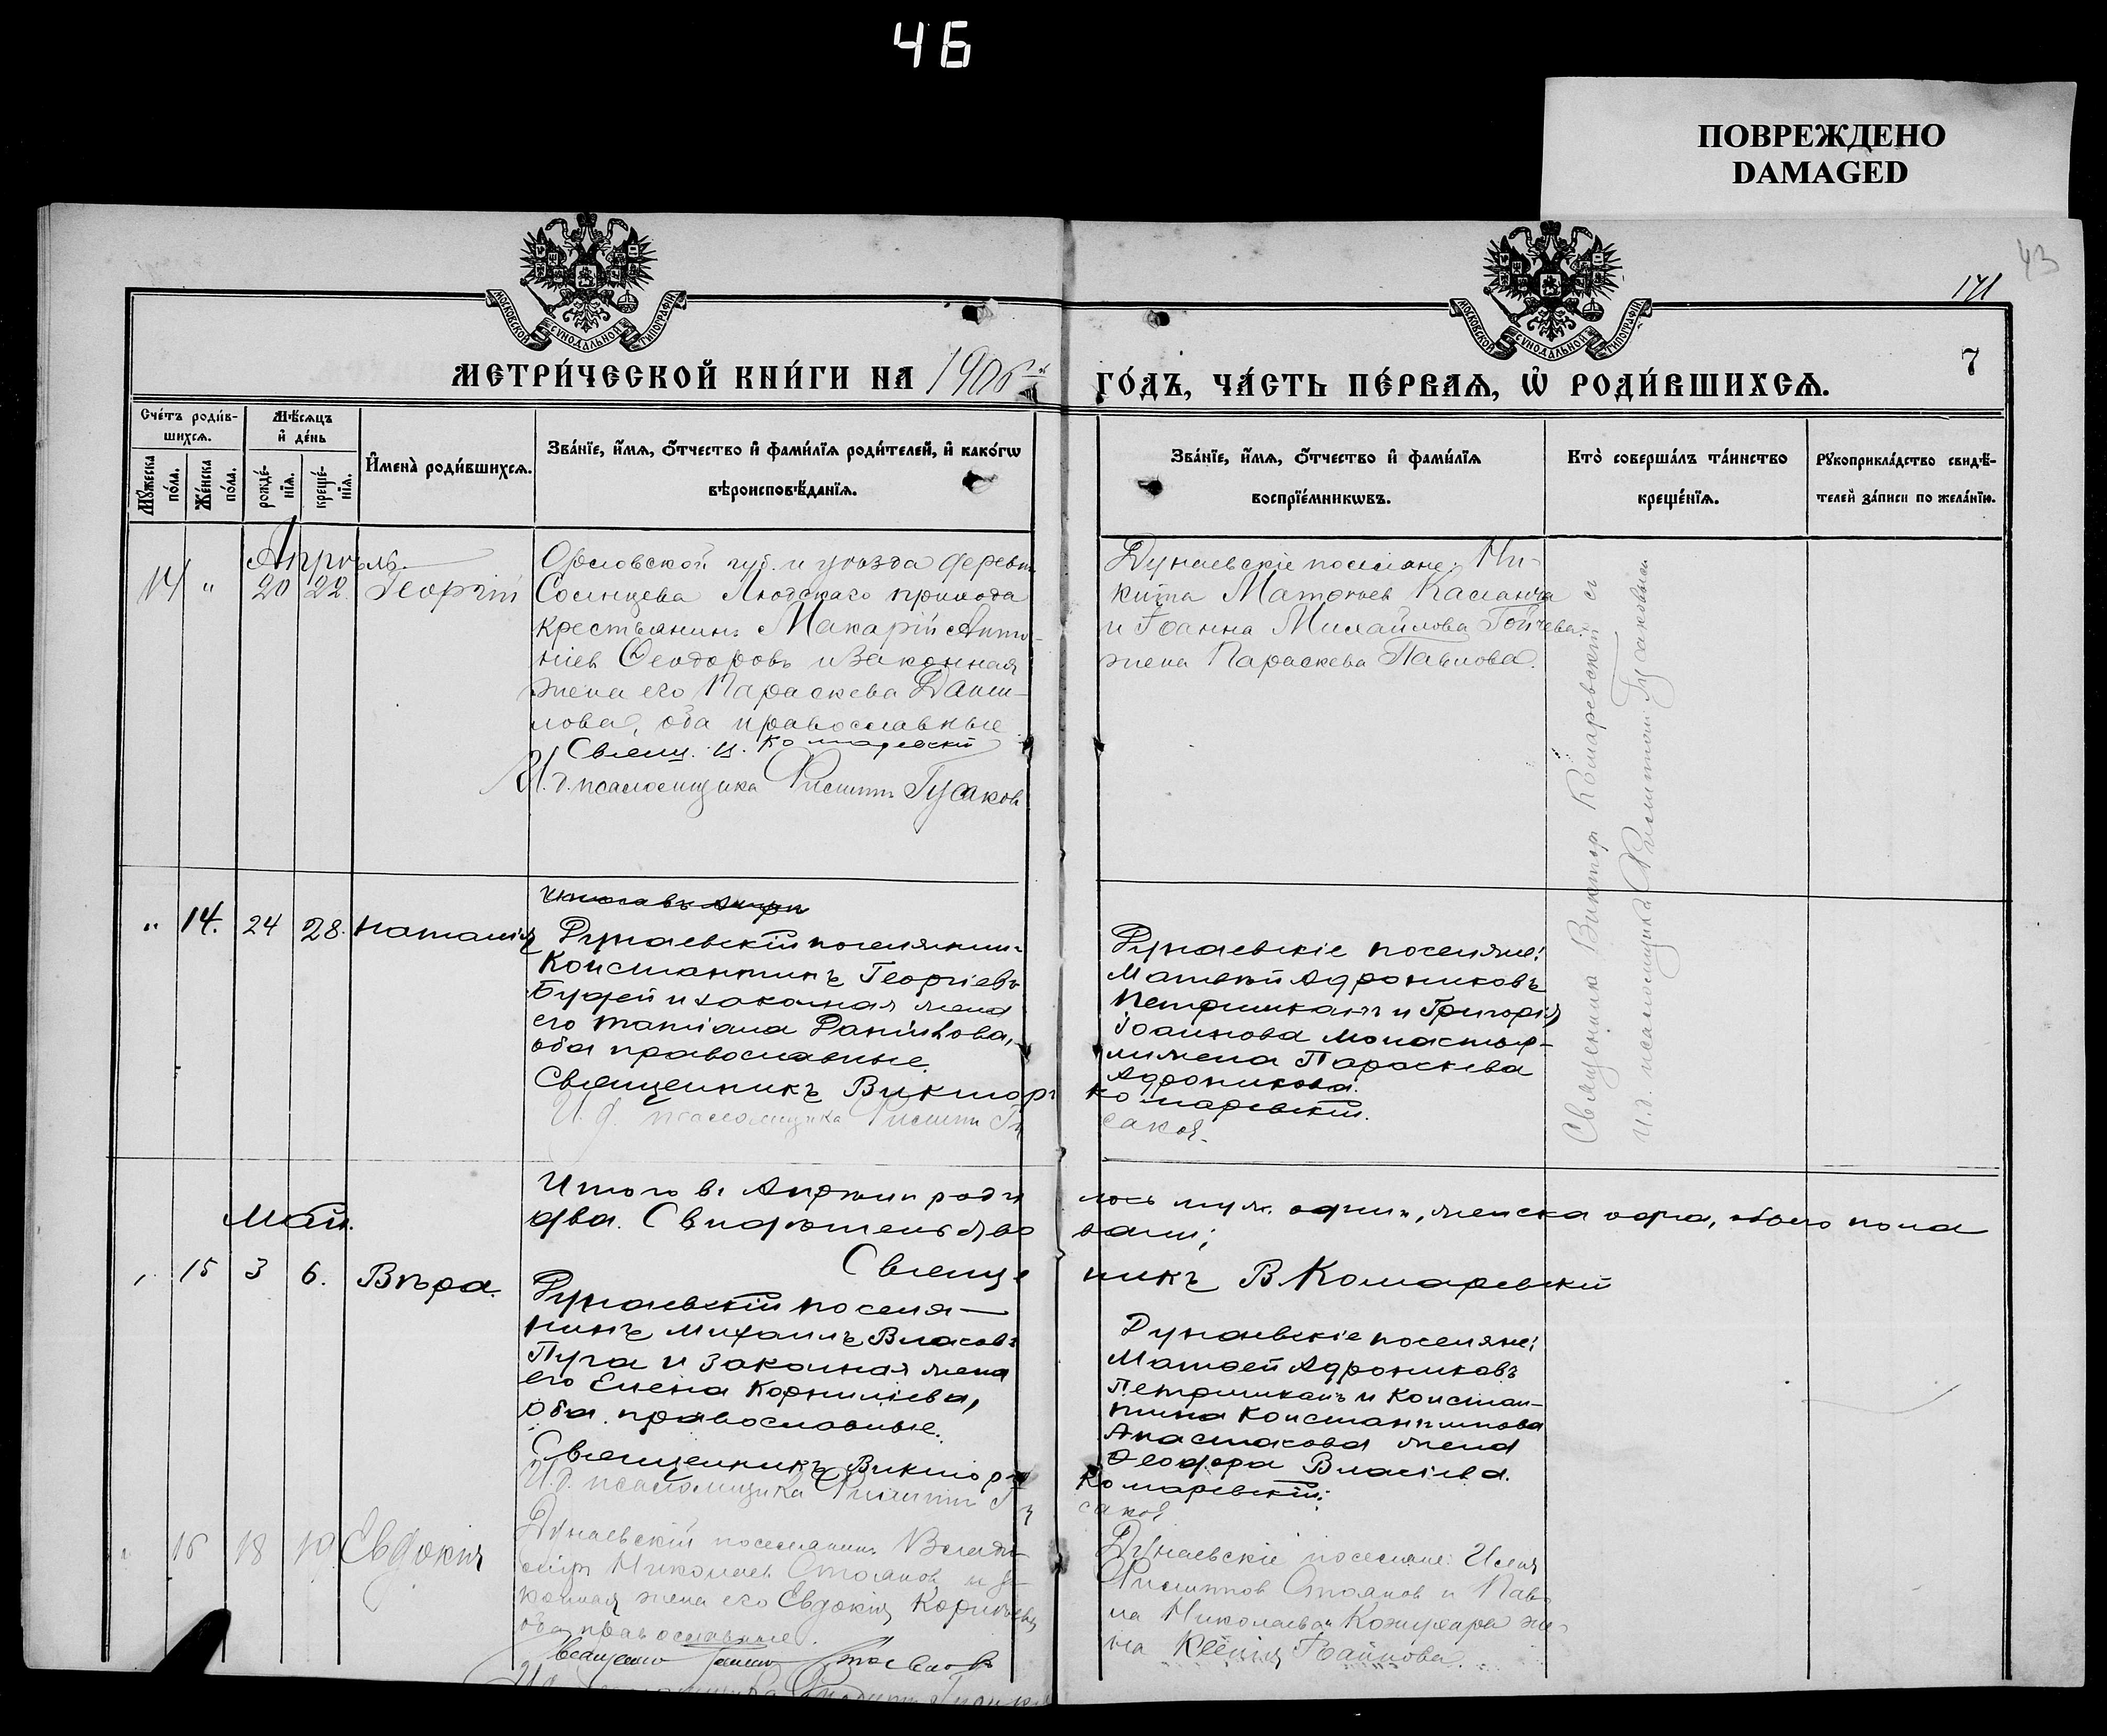 46
ПОВРЕЖДЕНО
DAMAGED
43
171
7
МОСКОВСКОЙ СѴНОДАЛЬНОЙ ТИПОГРАФІИ
МОСКОВСКОЙ СѴНОДАЛЬНОЙ ТИПОГРАФІИ
МЕТРИ́ЧЕСКОЙ КНИ́ГИ НА 1906
ГО́ДЪ, ЧА́СТЬ ПЕ́РВАѦ, Ѡ҆ РОДИ́ВШИХСѦ.
Сче́тъ роди́в-
шихсѧ.
Мѣ́сѧцъ
и҆ де́нь
Мꙋ́жеска
по́ла.
Же́нска
по́ла.
рожде́-
нїѧ.
креще́-
нїѧ.
И҆мена̀ роди́вшихсѧ.
Зва́нїе, и҆́мѧ, ѻ҆́тчество и҆ фами́лїѧ роди́телей, и҆ како́гѡ
вѣроисповѣ́данїѧ.
Зва́нїе, и҆́мѧ, ѻ҆́тчество и҆ фами́лїѧ
воспрїе́мникѡвъ.
Кто̀ соверша́лъ та́инство
креще́нїѧ.
Рꙋкоприкла́дство свидѣ́-
телей за́писи по жела́нїю.
Апрѣль.
14 " 20 22 Георгій
Орловской губ. и уѣзда деревни
Людскаго прихода
крестьянинъ Макарій Анто-
ніевъ Ѳеодоровъ и законная
жена его Параскева Дани-
лова, оба православные
Свящ. В. Комаревскій
И. д. псаломщика Филиппъ Гусаковъ
Дунаевскіе поселяне: Ни-
кита Матѳеевъ
и Іоанна Михайлова Гойчева
жена Параскева Павлова.
Священникъ Викторъ Комаревскій съ
и. д. псаломщика Филиппомъ Гусаковымъ
" 14. 24 28. Наталія
Дунаевскій поселянинъ
Константинъ Георгіевъ
Буфей и законная жена
его Татіана Данилова,
оба православные.
Священникъ Викторъ
И. д. псаломщика Филиппъ Гу
Дунаевскіе поселяне:
Матѳей Адрониковъ
Петришканъ и Григорія
Іоаннова Монастыр-
ли жена Параскева
Адроникова.
Комаревскій.
саковъ.
Итого въ Апрѣлѣ роди
лось муж. одинъ, женска одна, обоего пола
два. Свидѣтельство
вали;
Свяще
нникъ В. Комаревскій
Май.
" 15 3 6. Вѣра.
Дунаевскій поселя-
нинъ Михаилъ Власовъ
Пуга и законная жена
его Елена Корниліева,
оба православные.
Священникъ Викторъ
И. д. псаломщика Филиппъ Гу
Дунаевскіе поселяне:
Матѳей Адрониковъ
Петришканъ и Констан-
тина Константинова
Анастасова жена
Ѳеодора Власіева.
Комаревскій.
саковъ
" 16 18 19 Евдокія
Дунаевскій поселянинъ Влади-
міръ Николаевъ Стояновъ и за-
конная жена его Евдокія
оба православные.
Дунаевскіе поселяне: Илія
Филипповъ Стояновъ и Пав-
ла Николаева Кожухаря же-
на Ксенія Іоаннова.